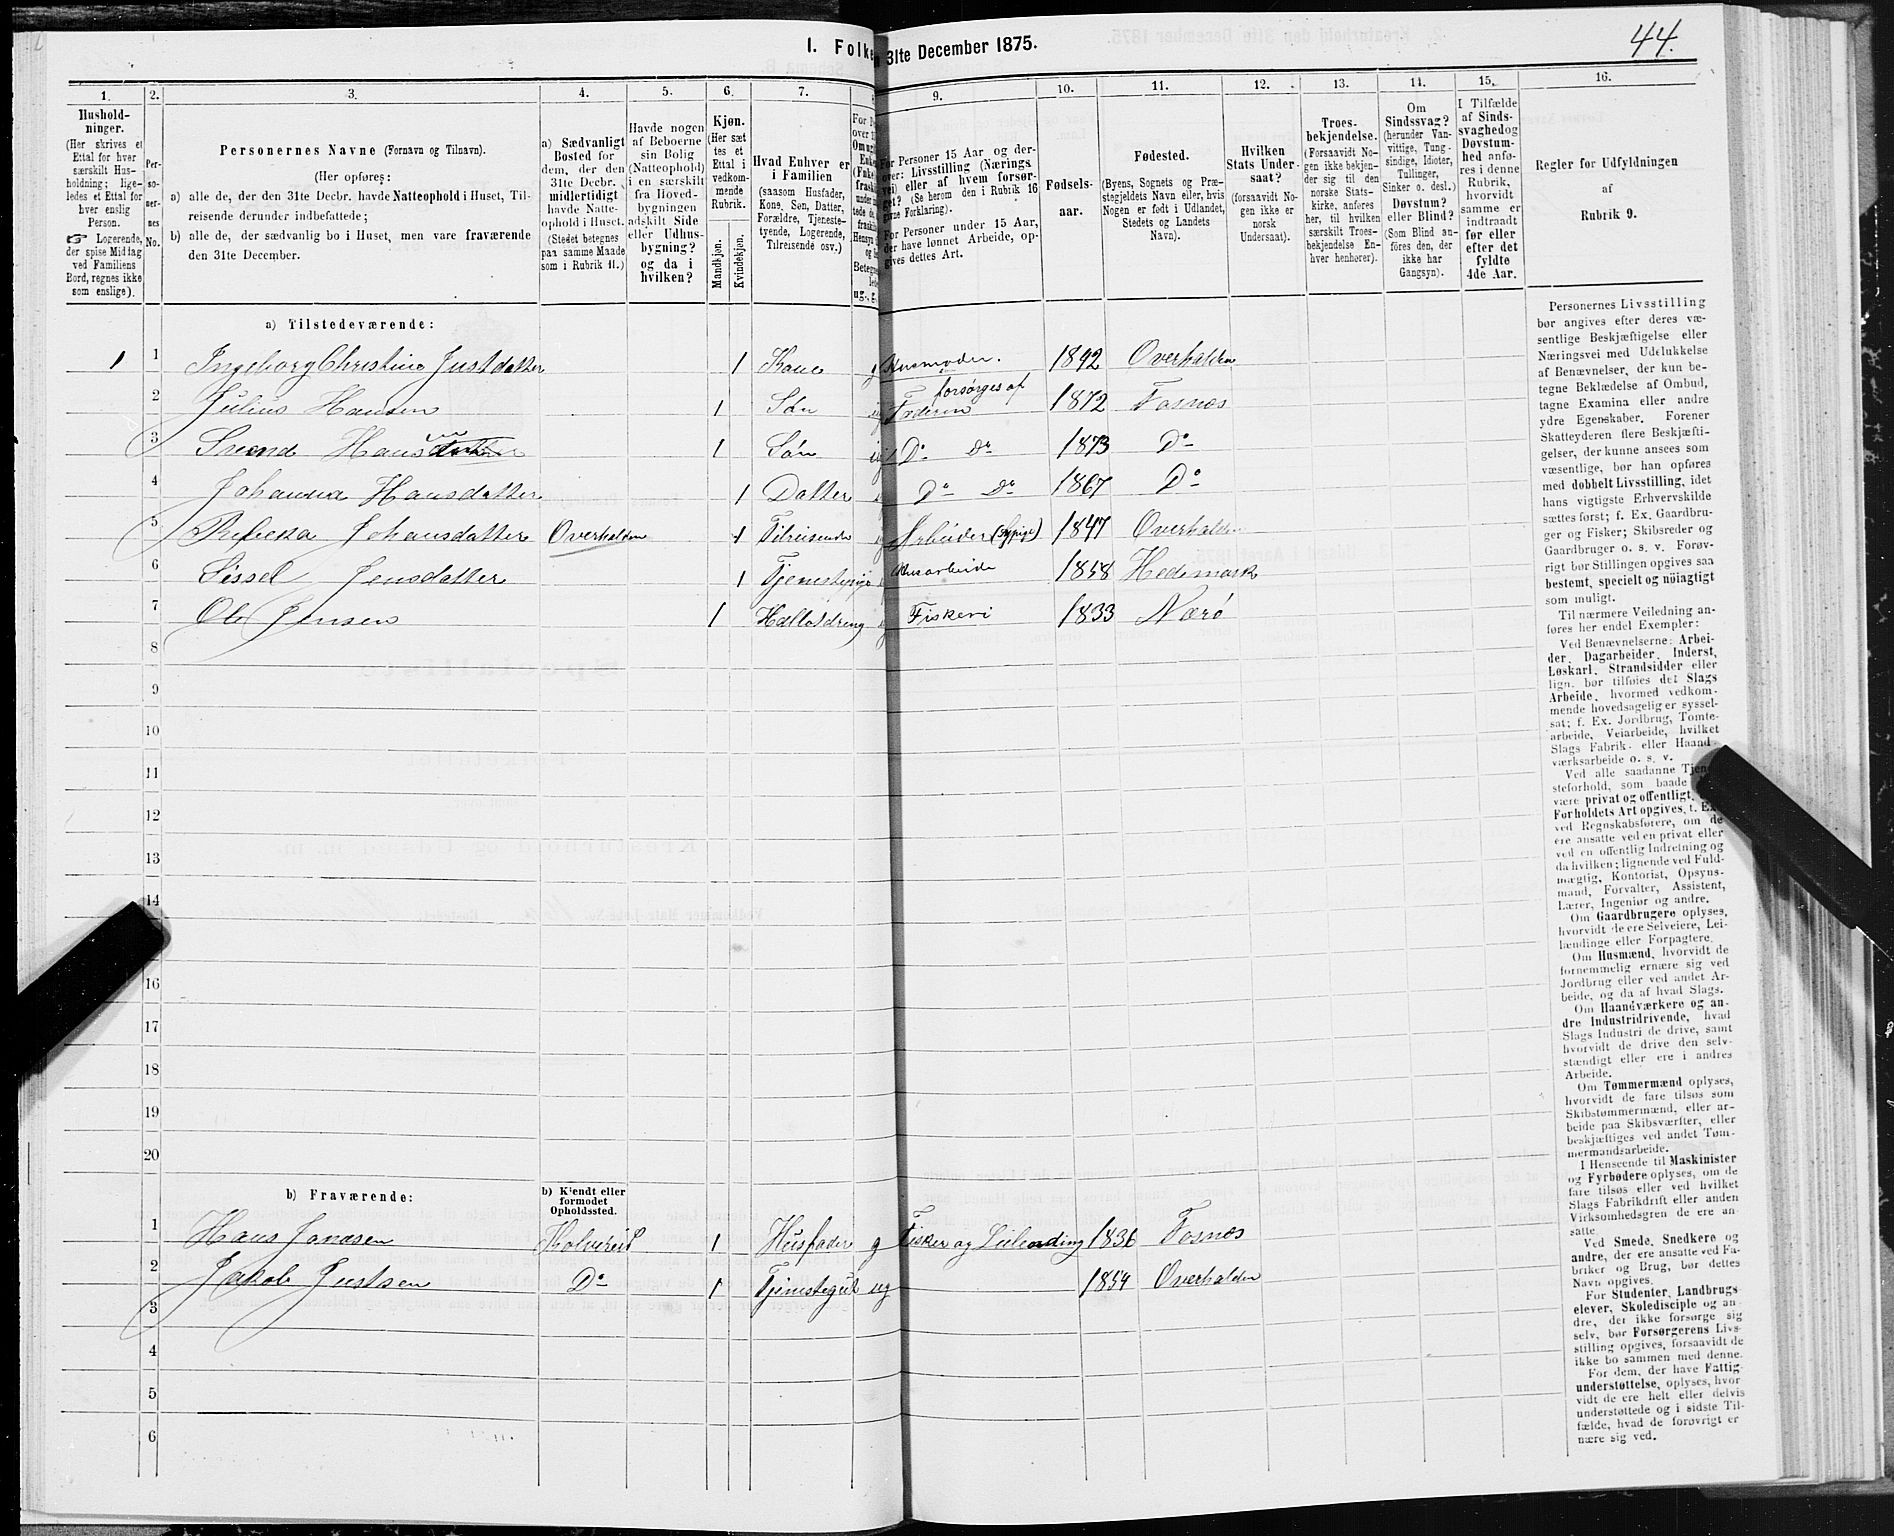 44.
I. Folke
31te December 1875.
1.
2.
3.
4.
5.
6.
7.
9.
10.
11.
12.
13.
14.
15.
16.
Hushold-
ninger.
(Her skrives et
Ettal for hver
særskilt Hus-
holdning; lige-
ledes et Ettal for
hver enslig
Person.
☞ Logerende,
der spise Middag
ved Familiens
Bord, regnes ikke
som enslige).
Per-
so-
ner-
nes
No.
Personernes Navne (Fornavn og Tilnavn).
(Her opføres:
a) alle de, der den 31te Decbr. havde Natteophold i Huset, Til-
reisende derunder indbefattede;
b) alle de, der sædvanlig bo i Huset, men vare fraværende
den 31te December.
a) Sædvanligt
Bosted for
dem, der den
31te Decbr.
midlertidigt
havde Natte-
ophold i Huset.
(Stedet betegnes
paa samme Maade
som i Rubrik 11.)
Havde nogen
af Beboerne
sin Bolig
(Natteophold)
i en særskilt
fra Hoved-
bygningen
adskilt Side
eller Udhus-
bygning?
og da i
hvilken?
Kjøn.
(Her sæt-
tes et
Ettal i
vedkom-
mende
Rubrik.
Mandkjøn.
Kvindekjøn.
Hvad Enhver er
i Familien
(saasom Husfader,
Kone, Søn, Datter,
Forældre, Tjeneste-
tyende, Logerende,
Tilreisende osv.)
ug., g.,
For Personer 15 Aar og der-
over: Livsstilling (Nærings-
vei) eller af hvem forsør-
get? (Se herom den i Rubrik 16
givne Forklaring).
For Personer under 15 Aar,
der have lønnet Arbeide, op-
gives dettes Art.
Fødsels-
aar.
Fødested.
(Byens, Sognets og Præ-
stegjeldets Navn eller, hvis
Nogen er født i Udlandet,
Stedets og Landets
Navn).
Hvilken
Stats Under-
saat?
(forsaavidt No-
gen ikke er
norsk
Undersaat).
Troes-
bekjendelse.
(Forsaavidt No-
gen ikke bekjen-
der sig til den
norske Stats-
kirke, anføres
her, til hvilken
særskilt Troes-
bekjendelse En-
hver henhører).
Om
Sindssvag?
(herunder Van-
vittige, Tung-
sindige, Idioter,
Tullinger,
Sinker o. desl.)
Døvstum?
eller Blind?
(Som Blind an-
føres den, der
ikke har
Gangsyn).
I Tilfælde
af Sinds-
svaghedog
Døvstum-
hed anfø-
res i denne
Rubrik,
hvorvidt
samme er
indtraadt
før eller
efter det
fyldte
4de Aar.
Regler for Udfyldningen
af
Rubrik 9.
a) Tilstedeværende:
1 1 Ingeborg Christine Justdatter 1 Kone g Husmoder. 1842 Overhalden
2 Julius Hansen 1 Søn ug forsørges af Faderen 1872 Fosnæs
3 Svend Hansen 1 Søn ug Do Do 1873 Do
4 Johanna Hansdatter 1 Datter Do Do 1867 Do
5 Rebekka Johansdatter Overhalden 1 Tilreisende Arbeider (Sypige) 1847 Overhalden
6 Sissel Jensdatter 1 Tjenestepige Husarbeide 1858 Hedemark
7 Ole Jensen 1 Fiskeri 1833 Nærø
8
9
10
11
12
13
14
16
17
18
19
20
b) Fraværende:
b) Kjendt eller
formodet
Opholdssted.
1 Hans Jonasen Kolvereid 1 Husfader g Fisker og Leilending 1836 Fosnæs
2 Jakob Justsen Do 1 Tjenestegut ug 1854 Overhalden
3
4
5
6
Personernes Livsstilling
bør angives efter deres væ-
sentlige Beskjæftigelse eller
Næringsvei med Udelukkelse
af Benævnelser, der kun be-
tegne Beklædelse af Ombud,
tagne Examina eller andre
ydre Egenskaber. Forener
Skatteyderen flere Beskjæfti-
gelser, der kunne ansees som
væsentlige, bør han opføres
med dobbelt Livsstilling, idet
hans vigtigste Erhvervskilde
sættes først; f. Ex. Gaardbru-
ger og Fisker; Skibsreder og
Gaardbruger o. s. v. Forøv-
rigt bør Stillingen opgives saa
bestemt, specielt og nöiagtigt
som muligt.
Til nærmere Veiledning an-
føres her endel Exempler:
Ved Benævnelserne: Arbei-
der, Dagarbeider, Inderst,
Løskarl, Strandsidder eller
lign. bør tilføies det Slags
Arbeide, hvormed vedkom-
mende hovedsagelig er syssel-
sat; f. Ex. Jordbrug, Tomte-
arbeide, Veiarbeide, hvilket
Slags Fabrik- eller Haand-
værksarbeide o. s. v.
Ved alle saadanne Tjene-
steforhold, som baade
være privat og offentligt,
Forholdets Art opgives, t. Ex.
ved Regnskabsførere, om de
ere ansatte ved en privat eller
ved en offentlig Indretning og
da hvilken; lignende ved Fuld-
mægtig, Kontorist, Opsyns-
mand, Forvalter, Assistent,
Lærer, Ingeniør og andre.
Om Gaardbrugere oplyses,
hvorvidt de ere Selveiere, Lei-
lændinge eller Forpagtere.
Om Husmænd, hvorvidt de
fornemmelig ernære sig ved
Jordbrug eller ved andet Ar-
beide, og da af hvad Slags.
Om Haandværkere og an-
dre Industridrivende, hvad
Slags Industri de drive, samt
hvorvidt de drive den selv-
stændigt eller ere i andres
Arbeide.
Om Tømmermænd oplyses,
hvorvidt de fare tilsøs som
Skibstømmermænd, eller ar-
beide paa Skibsværfter, eller
beskjæftiges ved andet Tøm-
mermandsarbeide.
I Henseende til Maskinister
og Fyrbødere oplyses, om de
fare tilsøs eller ved hvilket
Slags Fabrikdrift eller anden
Virksomhedsgren de ere an-
satte.
Ved Smede, Snedkere og
andre, der ere ansatte ved Fa-
briker og Brug, bør dettes
Navn opgives.
For Studenter, Landbrugs-
elever, Skoledisciple og an-
dre, der ikke forsørge sig
selv, bør Forsørgerens Livs-
stilling opgives, forsaavidt de
ikke bo sammen med denne.
For dem, der have Fattig-
understøttelse, oplyses, hvor-
vidt de ere helt eller delvis
understøttede og i sidste Til-
fælde, hvad de forøvrigt er
nære sig ved.